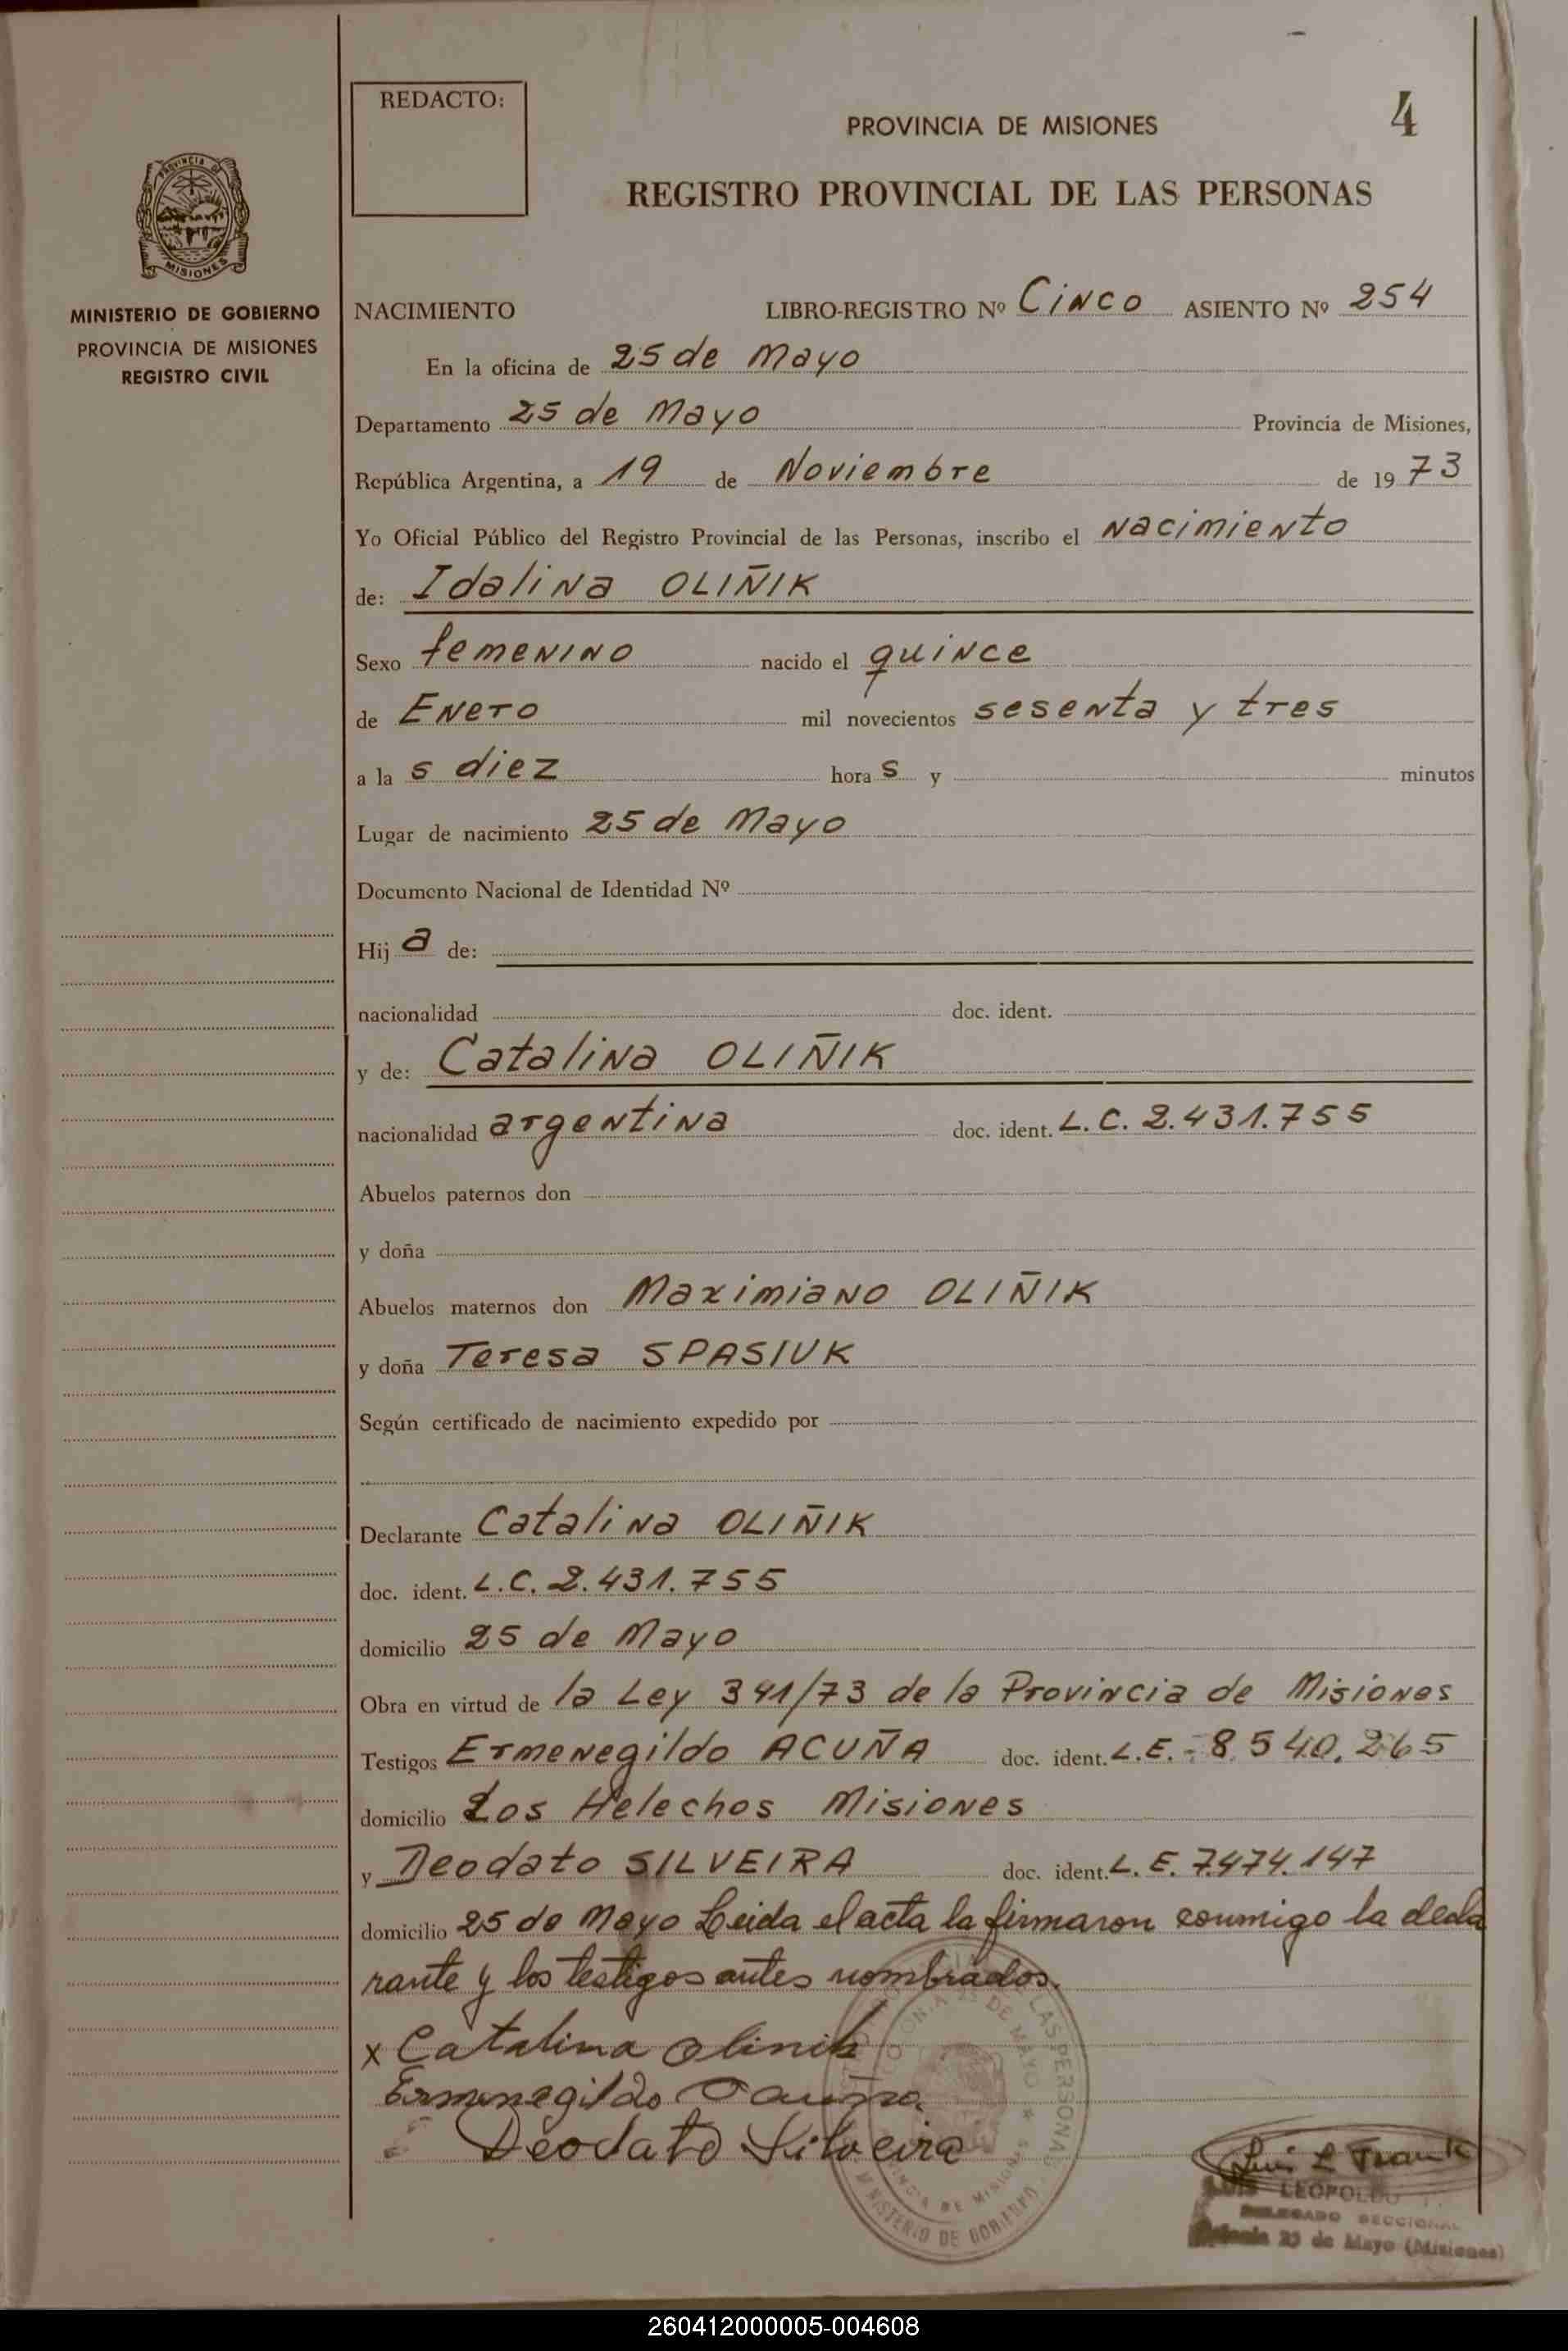 REDACTO:
PROVINCIA DE MISIONES
4
REGISTRO PROVINCIAL DE LAS PERSONAS
PROVINCIA DE
MISIONES
MINISTERIO DE GOBIERNO
PROVINCIA DE MISIONES
REGISTRO CIVIL
NACIMIENTO LIBRO-REGISTRO Nº Cinco ASIENTO Nº 254
En la oficina de 25 de Mayo
Departamento 25 de Mayo Provincia de Misiones,
República Argentina, a 19 de Noviembre de 1973
Yo Oficial Público del Registro Provincial de las Personas, inscribo el Nacimiento
de: Idalina OLIÑIK
Sexo femenino nacido el quince
de Enero mil novecientos sesenta y tres
a la s diez hora s y minutos
Lugar de nacimiento 25 de Mayo
Documento Nacional de Identidad Nº
Hij a de:
nacionalidad doc. ident.
y de: Catalina OLIÑIK
nacionalidad argentina doc. ident. L.C. 2.431.755
Abuelos paternos don
y doña
Abuelos maternos don Maximiano OLIÑIK
y doña Teresa SPASIUK
Según certificado de nacimiento expedido por
Declarante Catalina OLIÑIK
doc. ident. L.C. 2.431.755
domicilio 25 de Mayo
Obra en virtud de la Ley 341/73 de la Provincia de Misiones
Testigos Ermenegildo ACUÑA doc. ident. L.E. 8.540.265
domicilio Los Helechos Misiones
y Deodato SILVEIRA doc. ident. L.E. 7.474.147
domicilio 25 de Mayo Leida el acta la firmaron conmigo la decla
rante y los testigos antes nombrados.
x Catalina Olinik
Ermenegildo
Deodato Silveira
LAS PERSONAS
25 DE MAYO
PROVINCIA DE MISIONES
MINISTERIO DE GOBIERNO
Luis L Frank
LUIS LEOPOLDO
DELEGADO SECCIONAL
Colonia 25 de Mayo (Misiones)
260412000005-004608